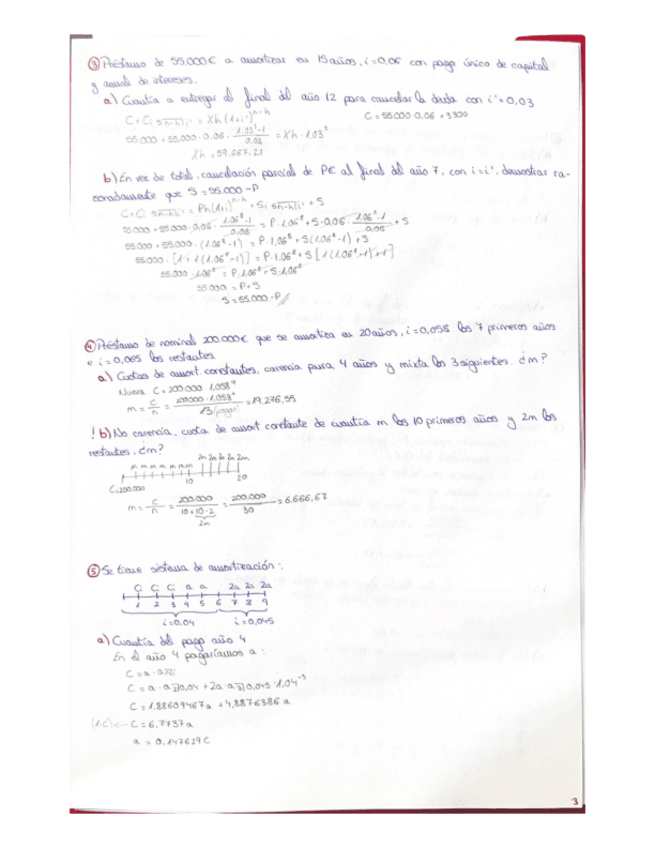 ③ Préstamo de 55.000€ a amortizar en 15 años, i=0,06 con pago único de capital
y anual de intereses.
a) Cuantía a entregar al final del año 12 para cancelar la deuda con i'=0,03
C + Ci s n-h| i' = Xh (1+i')^n-h
C = 55000·0,06 = 3300
55.000 + 55.000·0,06 · (1.03³-1)/0,03 = Xh · 1.03³
Xh = 59.667,21
b) En vez de total, cancelación parcial de P€ al final del año 7, con i=i', demostrar ra-
zonadamente que S = 55.000 - P
C + C i s n-h| i' = Ph (1+i)^n-h + Si s n-h| i' + S
55.000 + 55.000·0,06 · (1.06⁸-1)/0,06 = P·1.06⁸ + S·0,06 · (1.06⁸-1)/0,06 + S
55.000 + 55.000·(1.06⁸-1) = P·1,06⁸ + S(1.06⁸-1) + S
55.000 · [1 + 1(1.06⁸-1)] = P·1,06⁸ + S [1(1.06⁸-1)+1]
55.000 · 1.06⁸ = P·1.06⁸ + S·1,06⁸
55.000 = P + S
S = 55.000 - P //
④ Préstamo de nominal 200.000€ que se amortiza en 20 años, i=0,058 los 7 primeros años
e i=0,065 los restantes
a) Cuotas de amort. constantes, carencia pura 4 años y mixta los 3 siguientes. ¿m?
Nueva C = 200.000 · 1.058⁴
m = C/n = 200.000 · 1.058⁴ / 13 (pagos) = 19.276,55
! b) No carencia, cuota de amort constante de cuantía m los 10 primeros años y 2m los
restantes, ¿m?
m m m m m m 2m 2m 2m 2m 2m
10 20
C=200.000
m = C/n = 200.000 / (10+10·2) = 200.000/30 = 6.666,67
2m
⑤ Se tiene sistema de amortización:
Ci Ci Ci a a 2a 2a 2a
1 2 3 4 5 6 7 8 9
i=0,04 i=0,045
a) Cuantía del pago año 4
En el año 4 pagaríamos a:
C = a · a 2| i
C = a · a 2| 0,04 + 2a · a 3| 0,045 · 1.04⁻³
C = 1,88609467a + 4,8876386 a
(1·C) <- C = 6,7737a
a = 0,147629 C
3